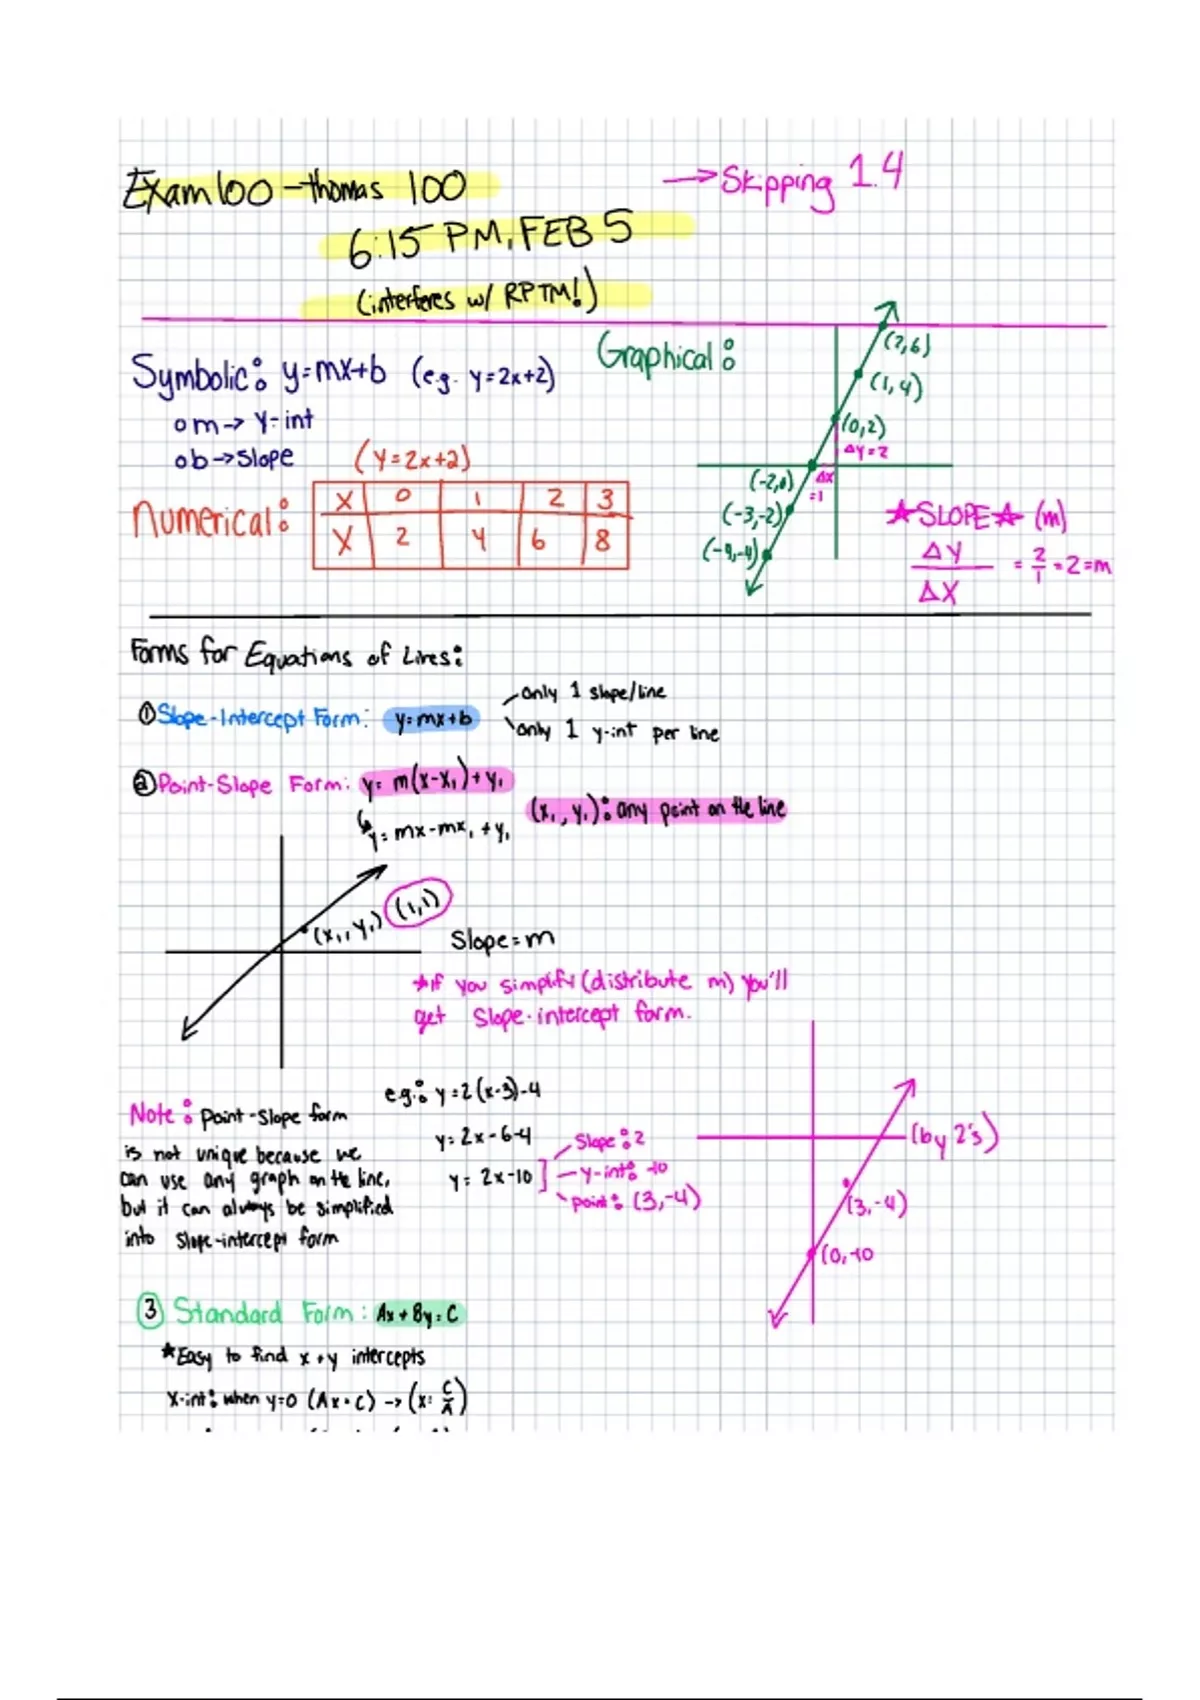 Exam 100 – thomas 100
→ Skipping 1.4
6:15 PM, FEB 5
(interferes w/ RPTM!)
Symbolic: y=mx+b (e.g. y=2x+2)
o m → y-int
o b → slope
Graphical:
(2,6)
(1,4)
(0,2)
Δy=2
(-2,0) Δx
=1
(-3,-2)
(-4,-4)
(y=2x+2)
Numerical:
X 0 1 2 3
Y 2 4 6 8
★SLOPE★ (m)
ΔY
ΔX
= 2/1 = 2 = m
Forms for Equations of Lines:
① Slope-Intercept Form: y=mx+b
only 1 slope/line
only 1 y-int per line
② Point-Slope Form: y= m(x-x₁)+y₁
(x₁, y₁): any point on the line
↳ y=mx-mx₁ +y₁
(x₁, y₁) (1,1)
Slope=m
★If you simplify (distribute m) you'll
get slope-intercept form.
Note: point-slope form
is not unique because we
can use any graph on the line,
but it can always be simplified
into slope-intercept form
e.g.: y=2(x-3)-4
y=2x-6-4
y=2x-10
slope: 2
y-int: -10
point: (3,-4)
(by 2's)
(3,-4)
(0,-10
③ Standard Form: Ax+By=C
★Easy to find x+y intercepts
x-int: when y=0 (Ax=C) → (x= C/A)